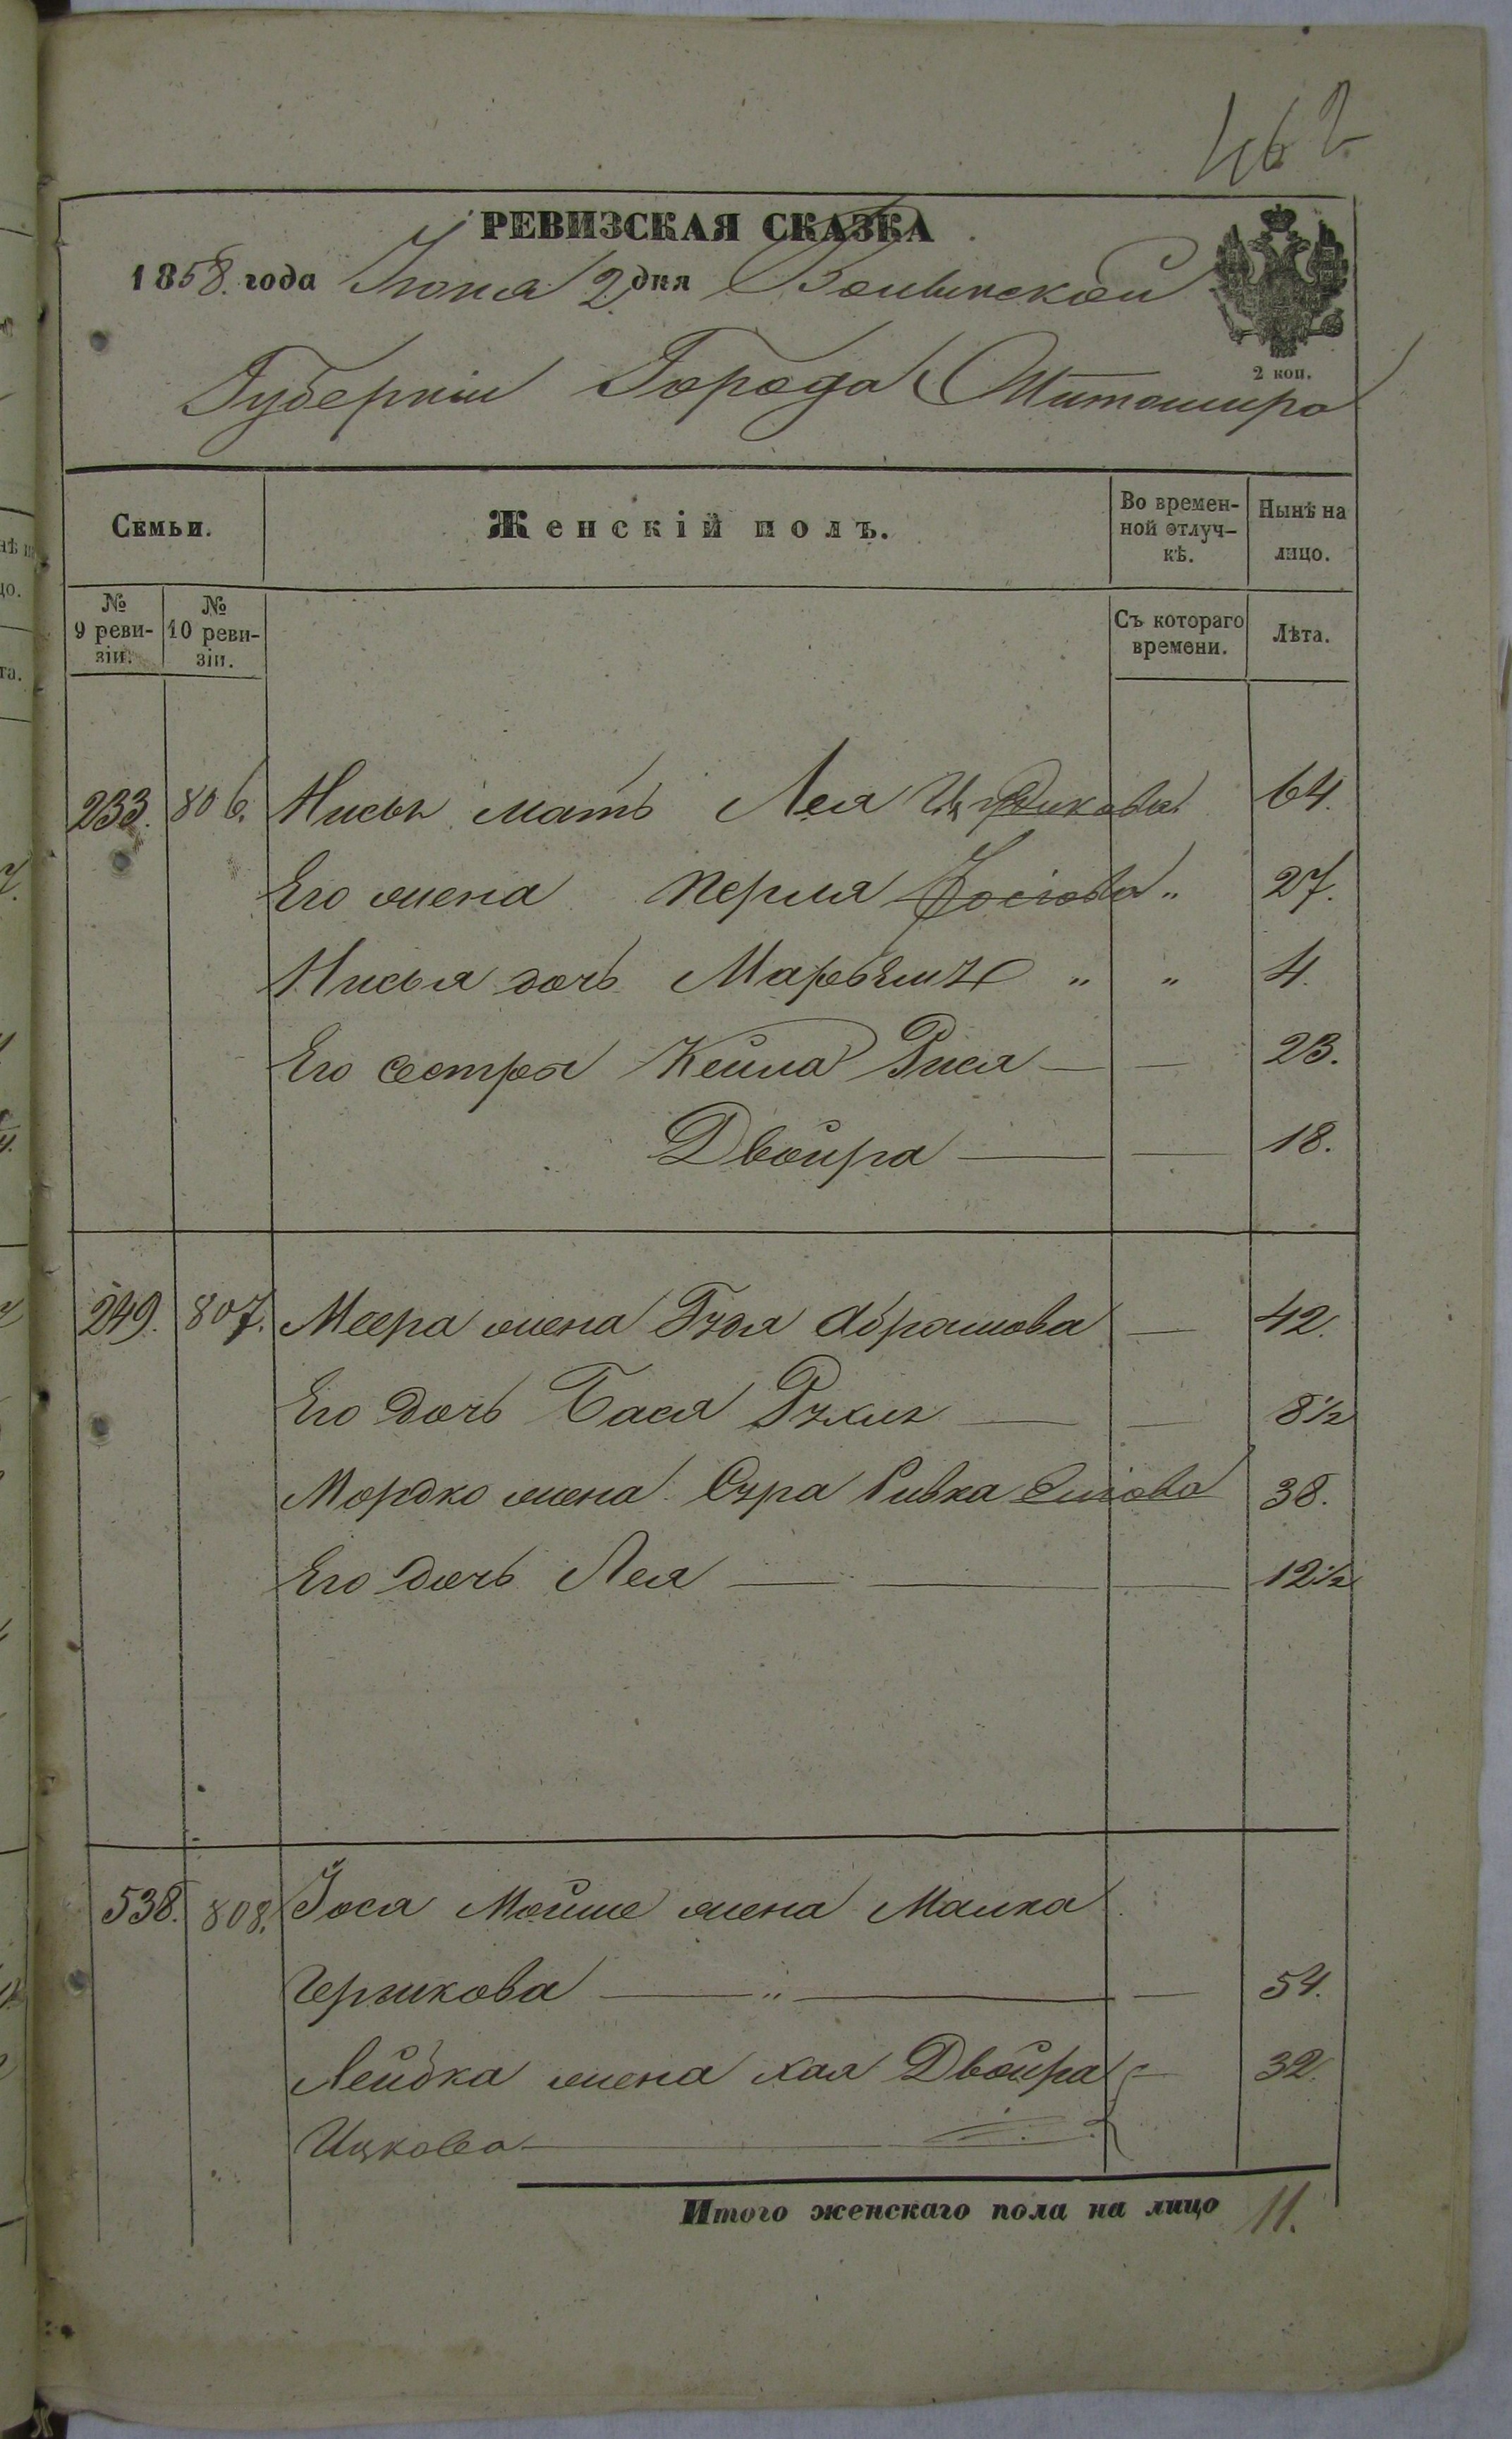 462
РЕВИЗСКАЯ СКАЗКА
1858. года Іюня 2 дня Волынской
Губерніи Города Житомира
2 коп.
Семьи.
Женскій полъ.
Во времен-
ной отлуч-
кѣ.
Нынѣ на
лицо.
№
9 реви-
зіи.
№
10 реви-
зіи.
Съ котораго
времени.
Лѣта.
233. 806. мать Лея 64.
Его жена Перля " 27.
Нисья дочь " " 4.
Его сестры Кейла Рися — — 23.
Двойра — — 18.
249. 807. Меера жена Гудя Абрамова — 42.
Его дочь Бася — — 8½
Мордко жена Сура Ривка 38.
Его дочь Лея — — — 12½
538. 808. Іося Мойше жена Малка
Гершкова — " — — 54.
Лейбка жена Хая Двойра — 32.
Ицкова —
Итого женскаго пола на лицо 11.